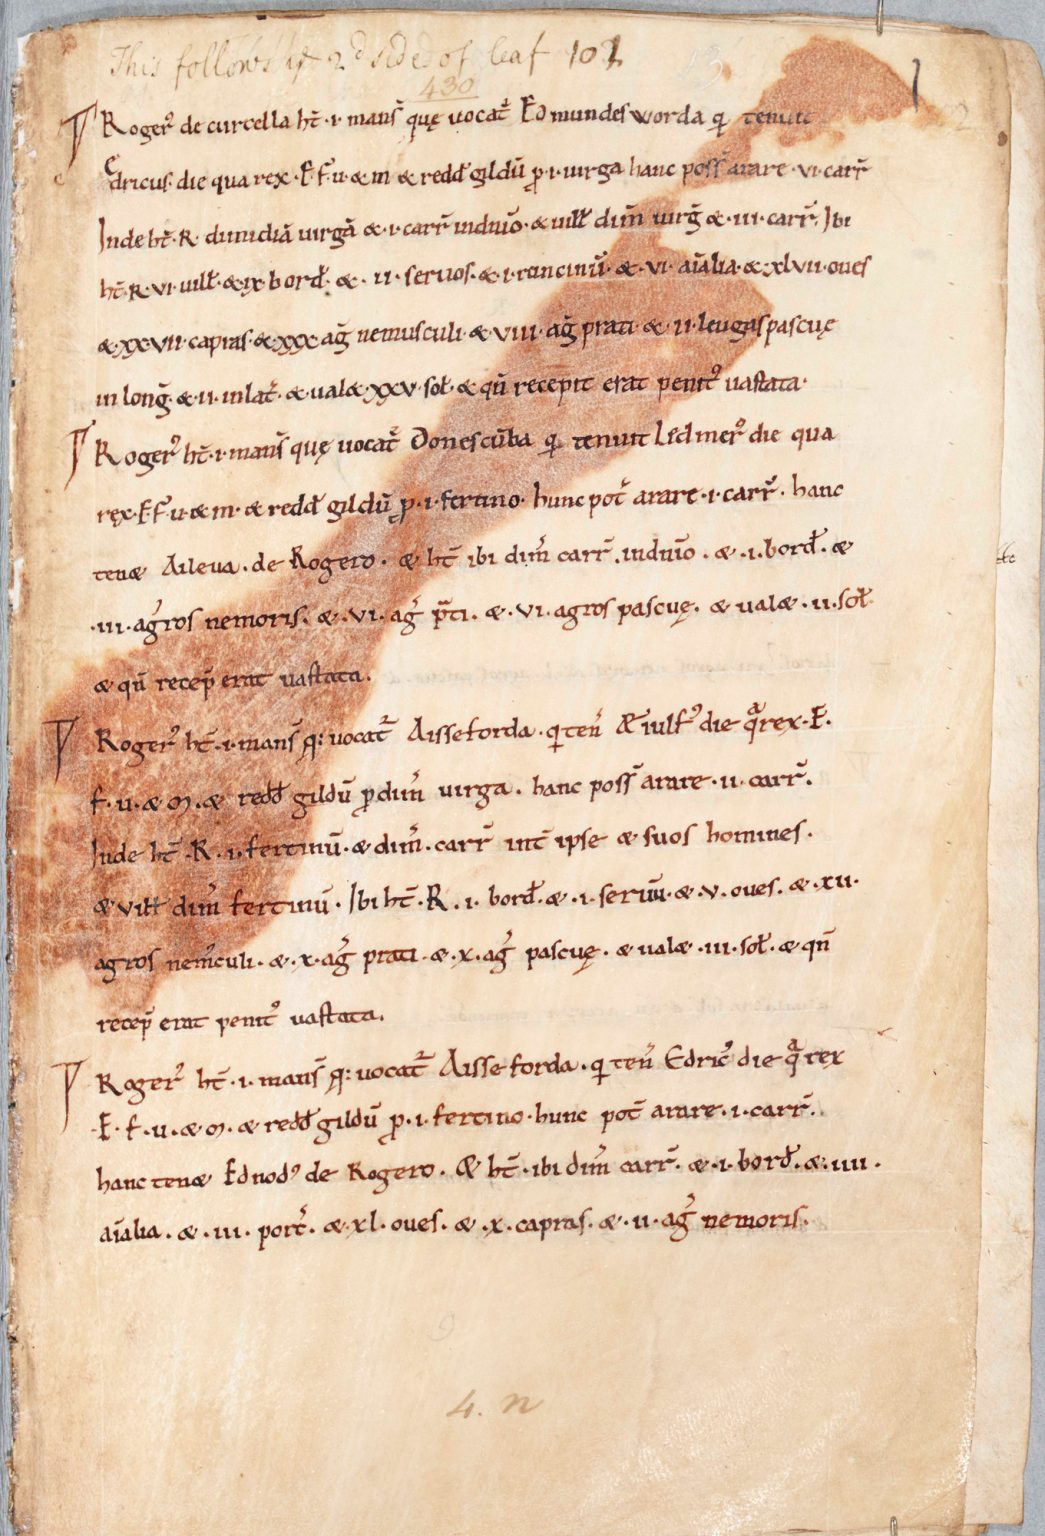 This follows ye 2d side of leaf 101
430
Rogerꝰ de curcella ht̄·i·mans̄ quę uocat̄ Edmundesworda q̨ tenuit
Edricus·die qua rex·E·f·u·æ m̄ æ redd̄ gildū ꝓ·i·uirga hanc poss̄ arare·vi·carr̄
Inde ht̄·R·dimidiā uirgā æ·i·carr̄ indnīo·æ uilł dim̄ uirḡ æ·iii·carr̄. Ibi
ht̄·R·vi·uilł·æ·ix·bord̄. æ·ii·seruos·æ·i·runcinū·æ·vi·aīalia·æ·xlvii·oues
æ·xxvii·capras·æ·xxx·aḡ nemusculi·æ·viii·aḡ prati·æ·ii·leugas pascuę
in lonḡ·æ·ii·in lat̄·æ·ualæ·xxv·sol·æ qn̄ recepit erat penitꝰ uastata·
Rogerꝰ ht̄·i·mans̄ quę uocat̄ Donescūba q̨ tenuit Ledmerꝰ die qua
rex·E·f·u·æ m·æ redd̄ gildū ꝓ·i·fertino·hunc pot̄ arare·i·carr̄·hanc
tenæ Aileua·de Rogero·æ ht̄ ibi dim̄ carr̄·indnīo·æ·i·bord̄·æ
·iii·agros nemoris·æ·vi·aḡ p̄ti·æ·vi·agros pascuę·æ ualæ·ii·soł·
æ qn̄ recep̄ erat uastata.
Rogerꝰ ht̄·i·mans̄ q̄: uocat̄ Aisseforda·q̨ ten̄ Æiulfꝰ die q̄ rex·E·
f·u·æ m·æ redd̄ gildū ꝓ dim̄ uirga·hanc poss̄ arare·ii·carr̄.
Inde ht̄·R·i·fertinū·æ dim̄·carr̄ int̄ ipse æ suos homines.
æ vilł dim̄ fertinū·Ibi ht̄·R·i·bord̄·æ·i·seruū·æ·v·oues·æ·xii·
agros nem̄culi·æ·x·aḡ prati·æ·x·aḡ pascuę·æ ualæ·iii·soł·æ qn̄
recep̄ erat penitꝰ uastata.
Rogerꝰ ht̄·i·mans̄ q̄: uocat̄ Aisseforda·q̨ ten̄ Edricꝰ die q̄ rex
·E·f·u·æ m·æ redd̄ gildū ꝓ·i·fertino·hunc pot̄ arare·i·carr̄.
hanc tenæ Ednodꝰ de Rogero·Æ ht̄·ibi dim̄ carr̄·æ·i·bord̄·æ·iiii·
aīalia·æ·iii·porc̄·æ·xl·oues·æ·x·capras·æ·ii·aḡ nemoris.
4. n